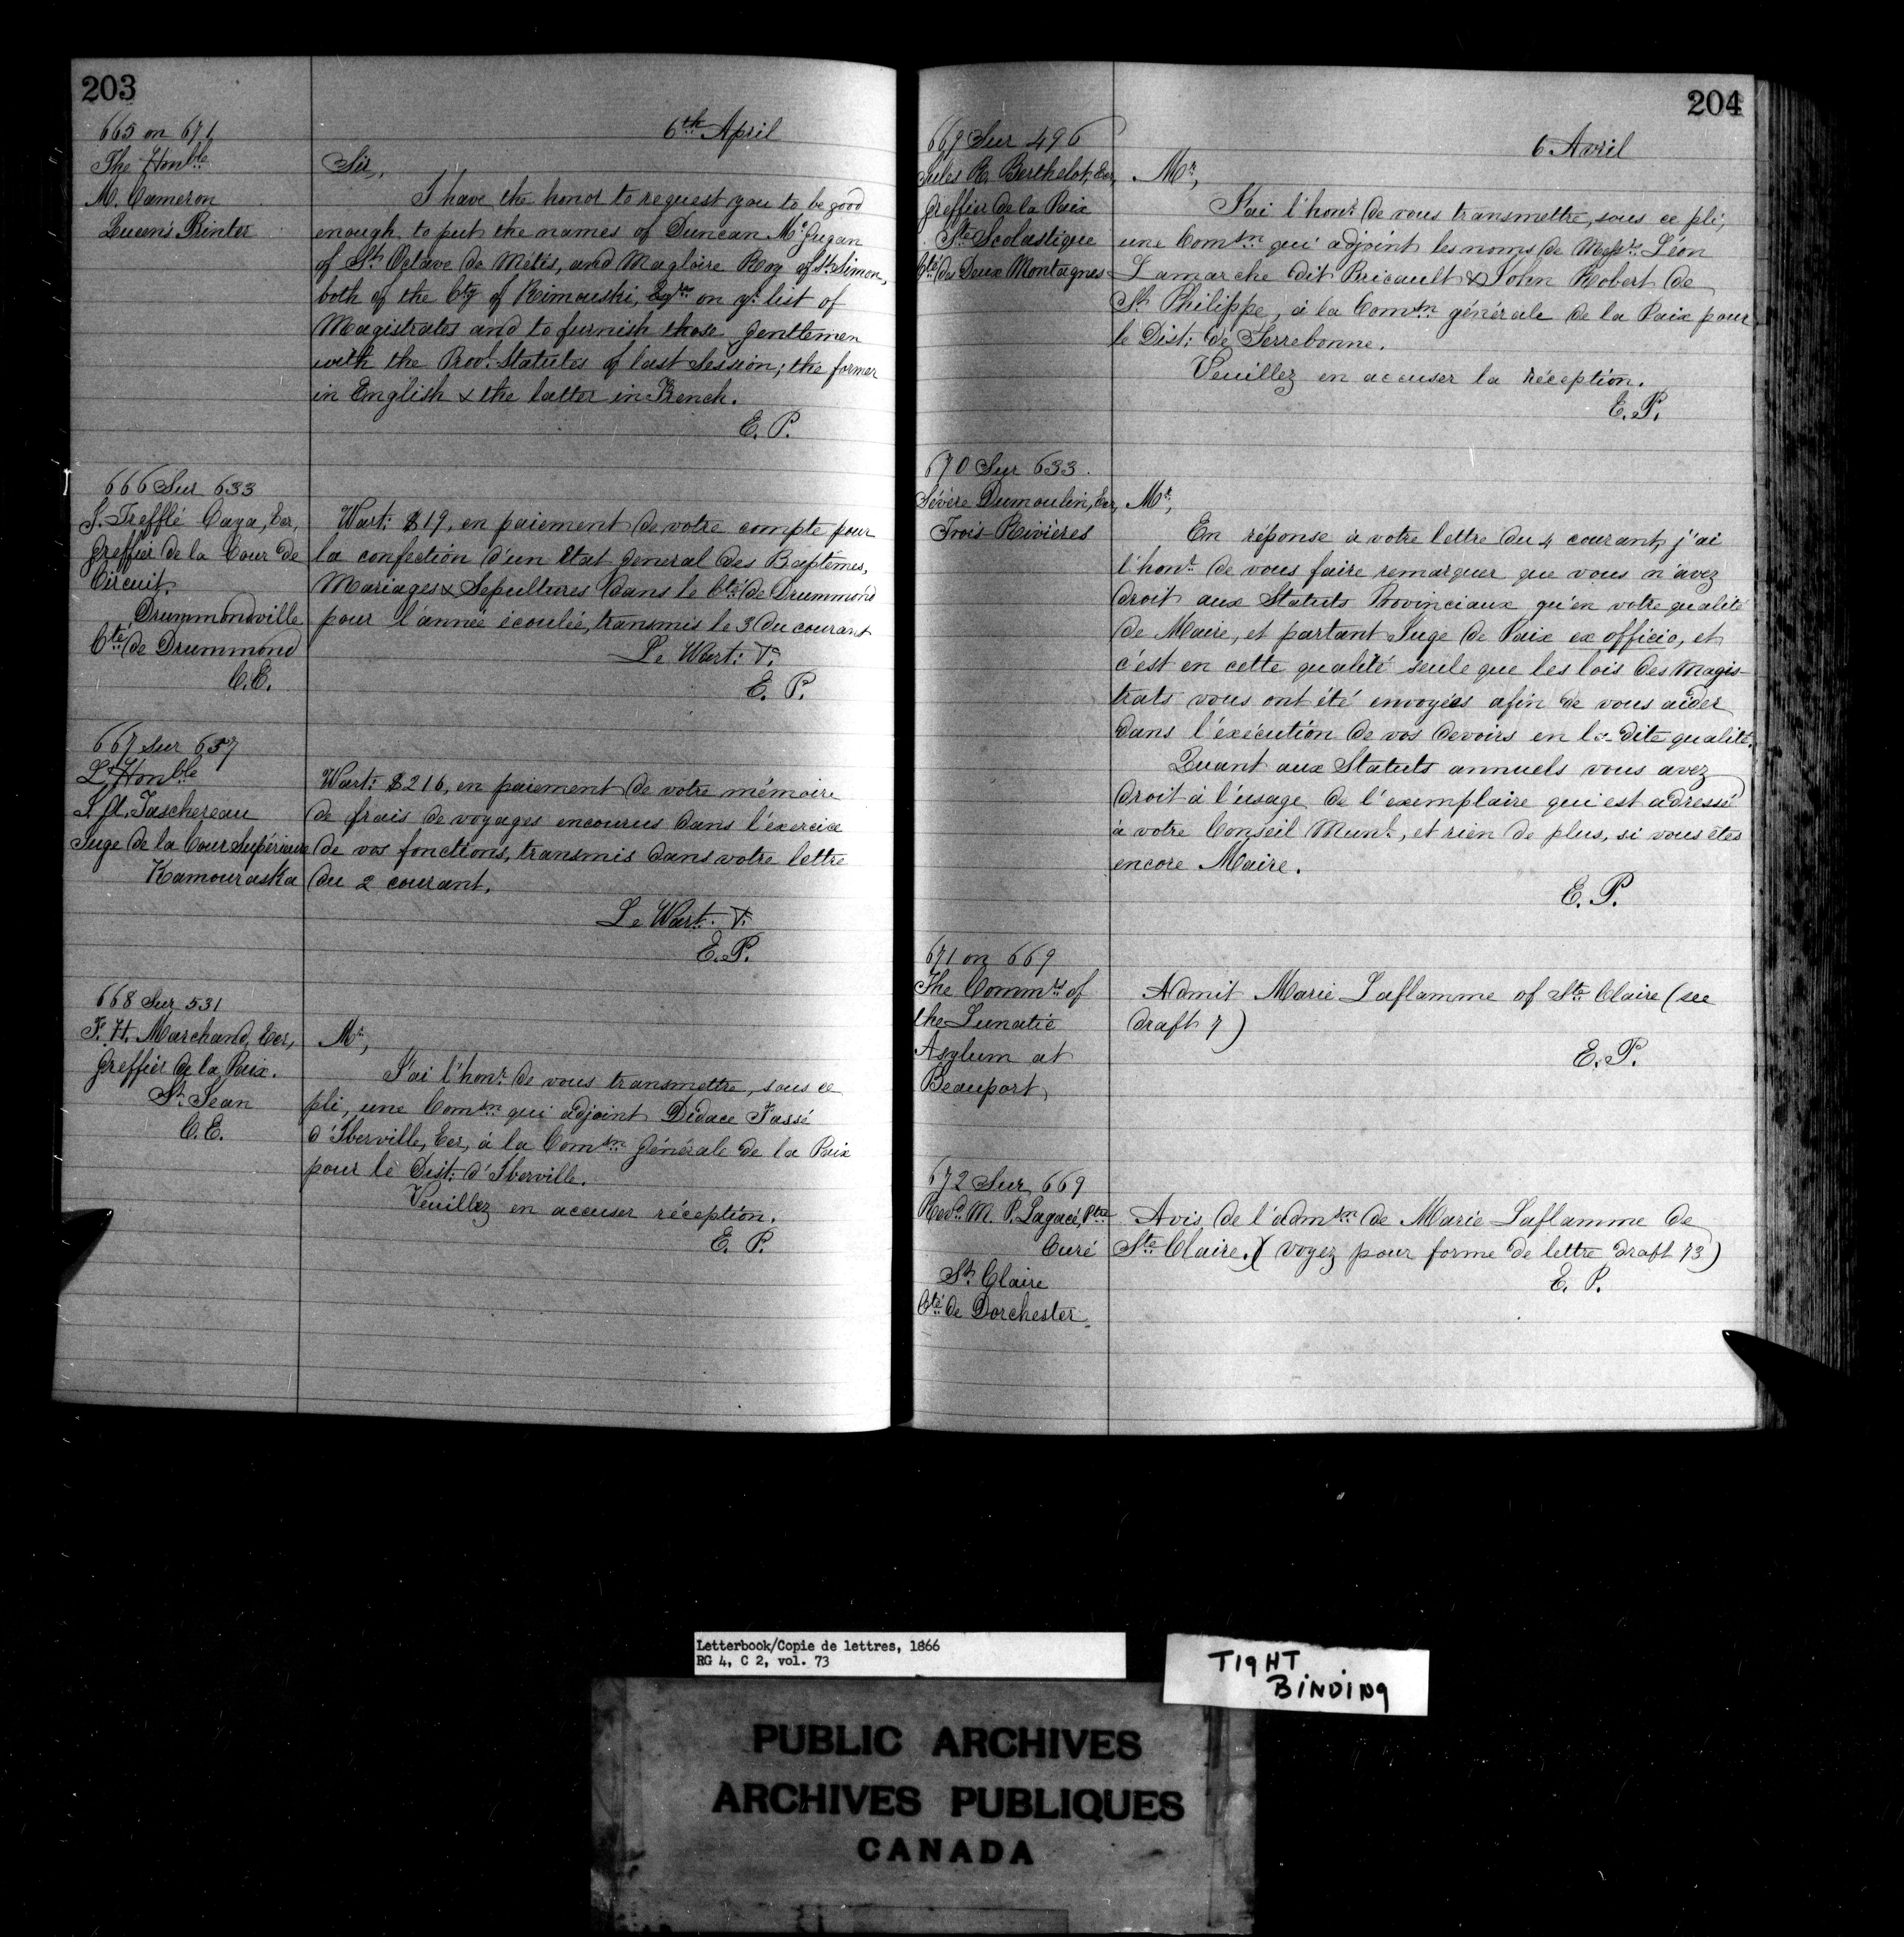 203
665 on 671
The Honble
M. Cameron
Queen's Printer
6th April
Sir,
I have the honor to request you to be good
enough to put the names of Duncan Mc Gugan
of St Octave de Métis, and Magloire Roy of St Simon,
both of the Cty of Rimouski, Esqrs on yr list of
Magistrates and to furnish those gentlemen
with the Provl Statutes of last Session; the former
in English & the latter in French.
E. P.
666 Sur 633
J. Trefflé Caya, Ecr,
Greffier de la Cour de
Circuit.
Drummondville
Cté de Drummond
C.E.
Wart: $19, en paiement de votre compte pour
la confection d'un Etat General des Baptemes,
Mariages & Sepultures dans le Cté de Drummond
pour l'année écoulée, transmis le 3 du courant
Le Wart: V.
E. P.
667 Sur 657
L'Honble
J. A. Taschereau
Juge de la Cour Supérieure
Kamouraska
Wart: $216, en paiement de votre mémoire
de frais de voyages encourus dans l'exercice
de vos fonctions, transmis dans votre lettre
du 2 courant.
Le Wart. V.
E. P.
668 Sur 531
F. H. Marchand, Ecr,
Greffier de la Paix.
St Jean
C. E.
Mr,
J'ai l'honr de vous transmettre, sous ce
pli, une Comsn qui adjoint Didace Tassé
d'Iberville, Ecr, à la Comsn Générale de la Paix
pour le Dist: d'Iberville.
Veuillez en accuser réception.
E. P.
204
669 Sur 496
Jules R. Berthelot, Ecr,
Greffier de la Paix
Ste Scolastique
Cté des Deux Montagnes
6 Avril
Mr,
J'ai l'honr de vous transmettre, sous ce pli,
une Comsn qui adjoint les noms de Messrs Léon
Lamarche dit Bricault & John Robert de
St Philippe, à la Comsn générale de la Paix pour
le Dist: de Terrebonne.
Veuillez en accuser la réception.
E. P.
670 Sur 633.
Sévère Dumoulin, Ecr,
Trois-Rivières
Mr,
En réponse à votre lettre du 4 courant, j'ai
l'honr de vous faire remarquer que vous n'avez
droit aux Statuts Provinciaux qu'en votre qualité
de Maire, et partant Juge de Paix ex officio, et
c'est en cette qualité seule que les lois des Magis-
trats vous ont été envoyées afin de vous aider
dans l'éxécution de vos devoirs en la dite qualité.
Quant aux Statuts annuels vous avez
droit à l'usage de l'exemplaire qui est adressé
à votre Conseil Munl, et rien de plus, si vous êtes
encore Maire.
E. P.
671 on 669
The Commrs of
the Lunatic
Asylum at
Beauport
Admit Marie Laflamme of Ste Claire (see
draft 7)
E. P.
672 Sur 669
Revd M. P. Lagacé, Ptre
Curé
Ste Claire
Cté de Dorchester
Avis de l'admsn de Marie Laflamme de
Ste Claire. (voyez pour forme de lettre draft 73)
E. P.
Letterbook/Copie de lettres, 1866
RG 4, C 2, vol. 73
TIGHT
BINDING
PUBLIC ARCHIVES
ARCHIVES PUBLIQUES
CANADA